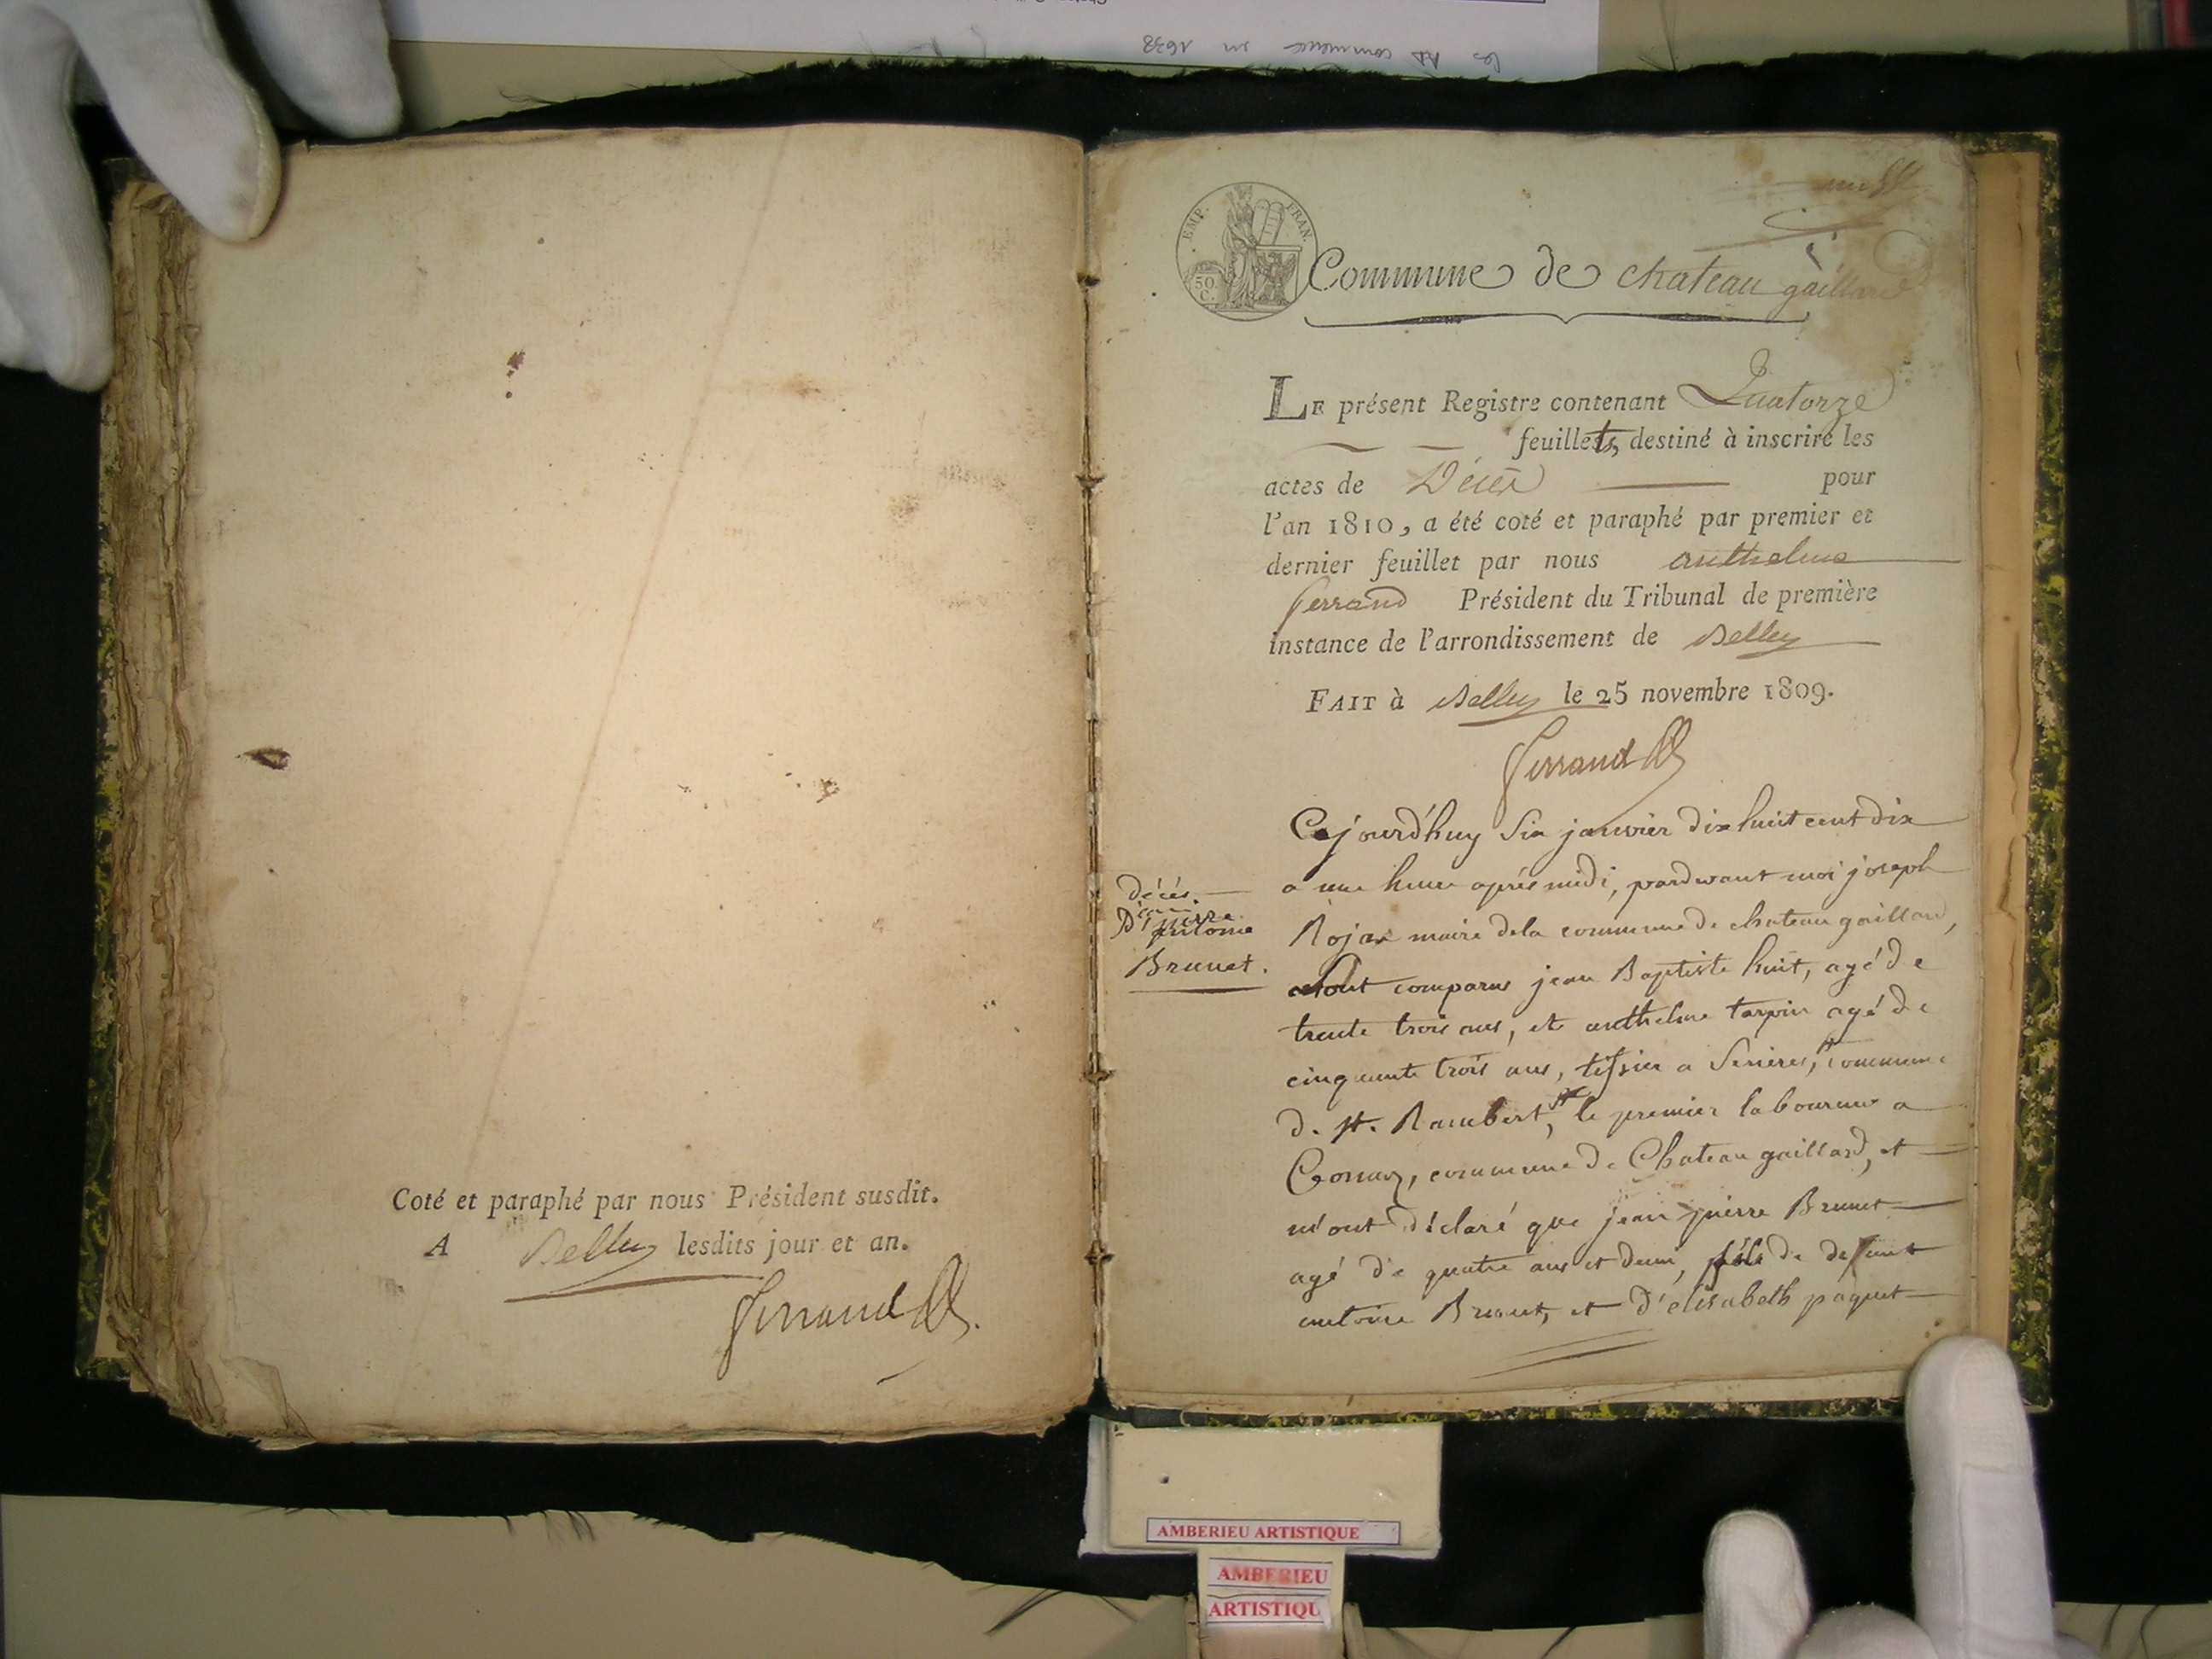 les AD commence en 1698
Coté et paraphé par nous Président susdit.
A Belley lesdits jour et an.
Ferrand
EMP. FRAN.
50 C.
Commune de chateau gaillard
LE présent Registre contenant Quatorze
feuillets, destiné à inscrire les
actes de Décès pour
l'an 1810, a été coté et paraphé par premier et
dernier feuillet par nous anthelme
ferrand Président du Tribunal de première
instance de l'arrondissement de Belley
FAIT à Belley le 25 novembre 1809.
Ferrand
décès.
D'jean pierre
antoine
Brunet.
Cejourd'huy Six janvier dix huit cent dix
a une heure après midi, pardevant moi joseph
Rojat maire dela commune de chateau gaillard,
ont comparus jean Baptiste huit, agé de
trente trois ans, et anthelme tarpin agé de
cinquante trois ans, tessier a Serieres, commune
de st. Rambert, le premier laboureur a
Cormoz, commune de Chateau gaillard, et
m'ont déclaré que jean pierre Brunet
agé de quatre ans et demi, fils de defunt
antoine Brunet, et d'elisabeth paquet
AMBERIEU ARTISTIQUE
AMBERIEU
ARTISTIQU